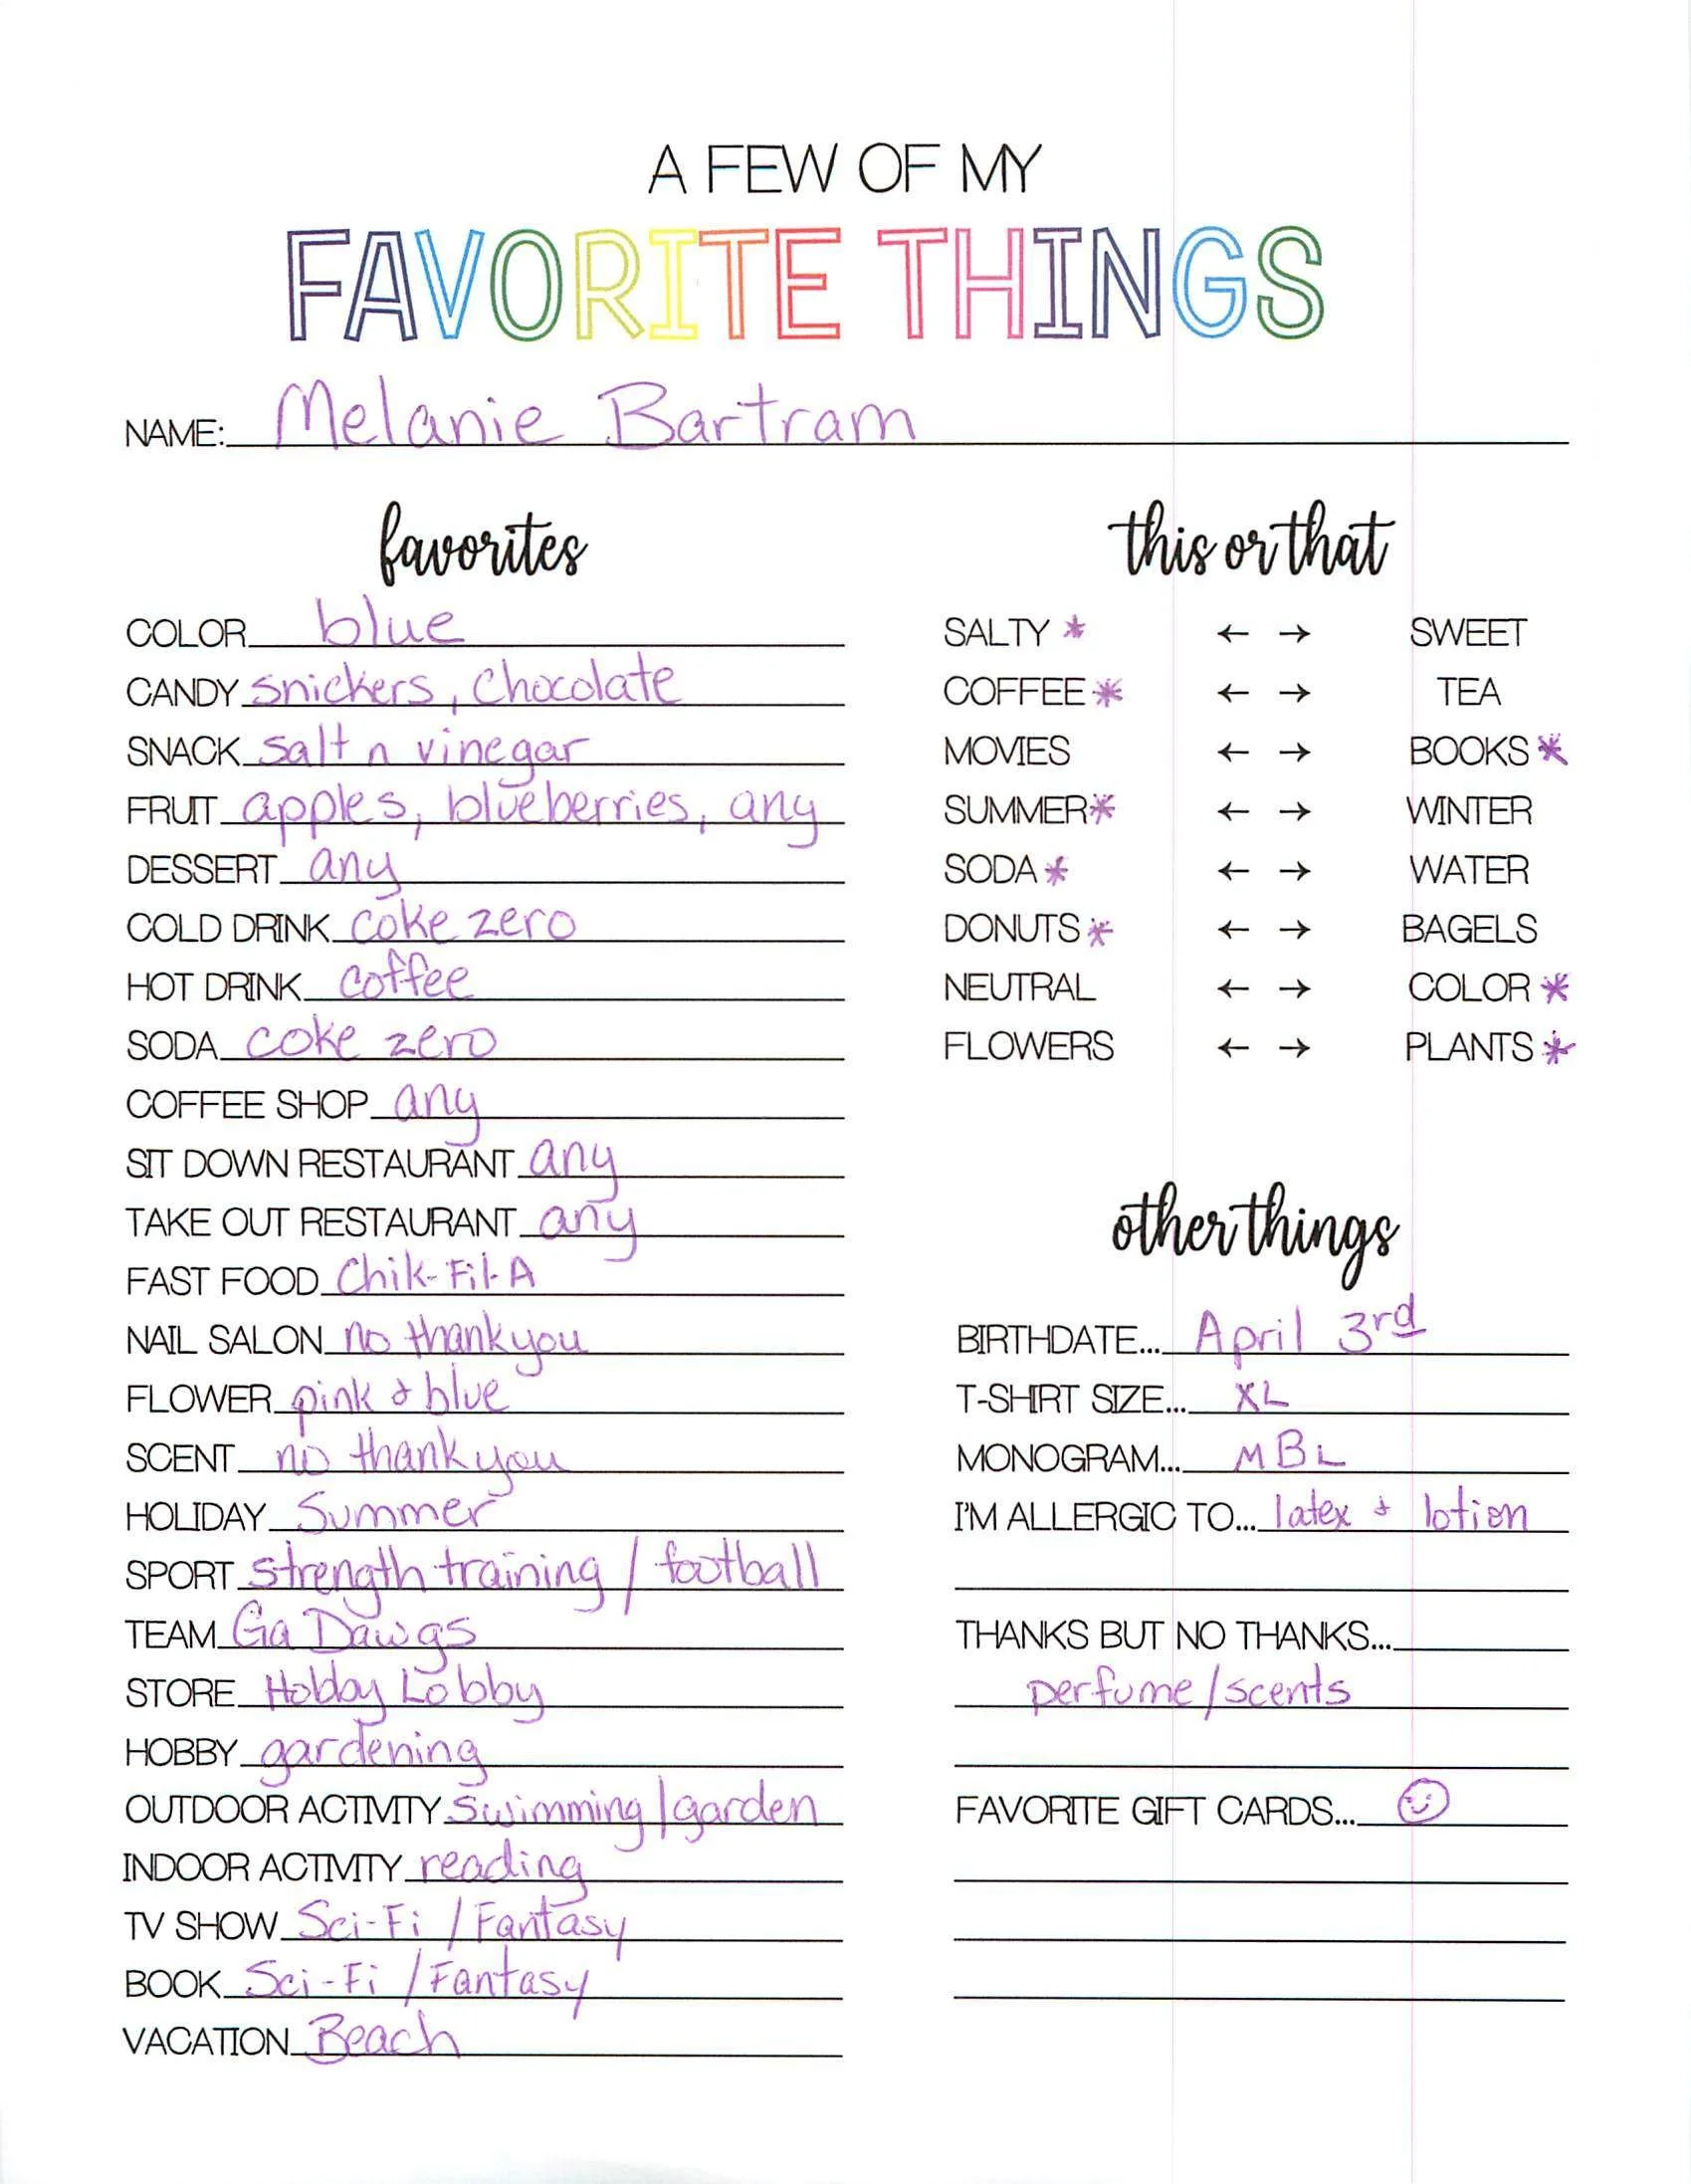 A FEW OF MY
FAVORITE THINGS
NAME: Melanie Bartram
favorites
COLOR blue
CANDY snickers, chocolate
SNACK salt n vinegar
FRUIT apples, blueberries, any
DESSERT any
COLD DRINK coke zero
HOT DRINK coffee
SODA coke zero
COFFEE SHOP any
SIT DOWN RESTAURANT any
TAKE OUT RESTAURANT any
FAST FOOD Chik-Fil-A
NAIL SALON no thank you
FLOWER pink & blue
SCENT no thank you
HOLIDAY Summer
SPORT strength training / football
TEAM Ga Dawgs
STORE Hobby Lobby
HOBBY gardening
OUTDOOR ACTIVITY swimming / garden
INDOOR ACTIVITY reading
TV SHOW Sci-Fi / Fantasy
BOOK Sci-Fi / Fantasy
VACATION Beach
this or that
SALTY * ← → SWEET
COFFEE * ← → TEA
MOVIES ← → BOOKS *
SUMMER * ← → WINTER
SODA * ← → WATER
DONUTS * ← → BAGELS
NEUTRAL ← → COLOR *
FLOWERS ← → PLANTS *
other things
BIRTHDATE... April 3rd
T-SHIRT SIZE... XL
MONOGRAM... MBL
I'M ALLERGIC TO... latex & lotion
THANKS BUT NO THANKS...
perfume / scents
FAVORITE GIFT CARDS... ☺